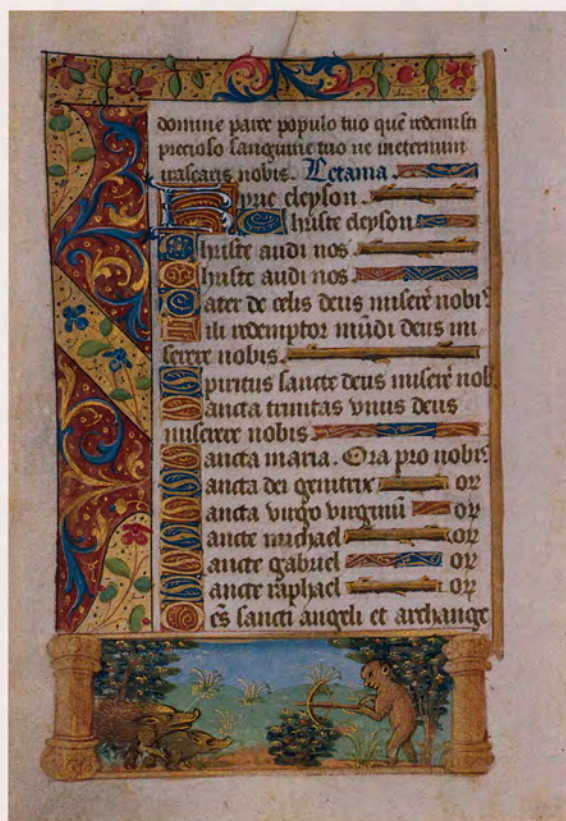 domine parce populo tuo quē redemisti
precioso sanguine tuo ne ineternum
irascaris nobis. Letania.
Kyrie eleyson.
Christe eleyson
Christe audi nos.
Christe audi nos.
Pater de celis deus miserē nobis
Fili redemptor mūdi deus mi
serere nobis.
Spiritus sancte deus miserē nob
Sancta trinitas vnus deus
miserere nobis
Sancta maria. Ora pro nobis.
Sancta dei genitrix or
Sancta virgo virginū or
Sancte michael or
Sancte gabriel or
Sancte raphael or
Oēs sancti angeli et archange